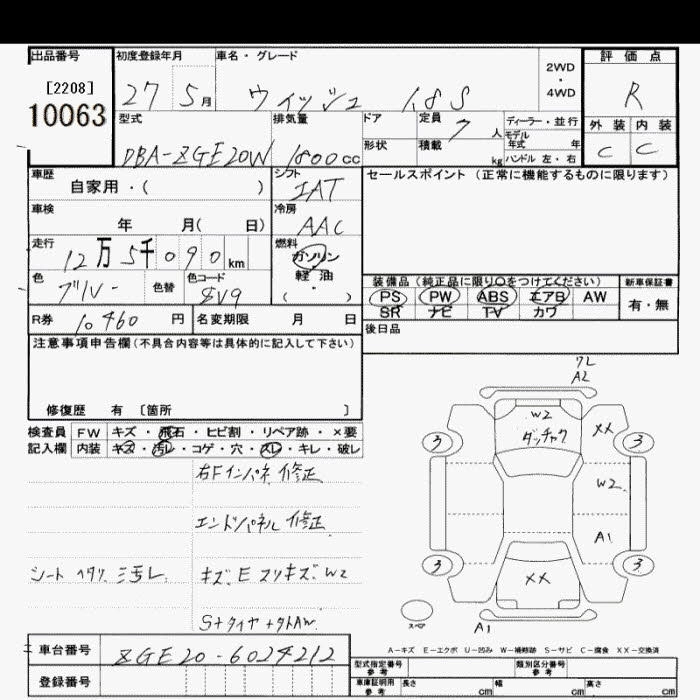 出品番号
[2208]
10063
初度登録年月
27 5月
車名・グレード
ウィッシュ 1.8S
2WD
・
4WD
評価点
R
外装 内装
C C
型式
DBA-ZGE20W
排気量
1800cc
ドア
形状
定員 7 人
積載 kg
ディーラー・並行
モデル年式 年
ハンドル 左・右
車歴
自家用・( )
シフト
IAT
車検
年 月( 日)
冷房
AAC
走行
12万5千090km
燃料
ガソリン
軽油
・
( )
色
ブルー
色替
色コード
8V9
R券
10,460円
名変期限 月 日
セールスポイント (正常に機能するものに限ります)
装備品 (純正品に限り○をつけてください)
PS PW ABS エアB AW
SR ナビ TV カワ
新車保証書
有・無
後日品
注意事項申告欄(不具合内容等は具体的に記入して下さい)
修復歴 有 〔箇所 〕
検査員記入欄
FW キズ・飛石・ヒビ割・リペア跡・×要
内装 キズ・汚レ・コゲ・穴・スレ・キレ・破レ
右Fインパネ 修正
エンドパネル 修正
シート ヘタリ
キズ. E スリキズ. W2
S+タイヤ
ワレ
A2
W2
ダッチャク
XX
3
3
W2
A1
3
3
XX
スペア
A1
A-キズ E-エクボ U-凹み W-補修跡 S-サビ C-腐食 XX-交換済
車台番号
ZGE20-6024212
登録番号
型式指定番号
参考
類別区分番号
参考
車庫証明用
参考
長さ cm 幅 cm 高さ cm